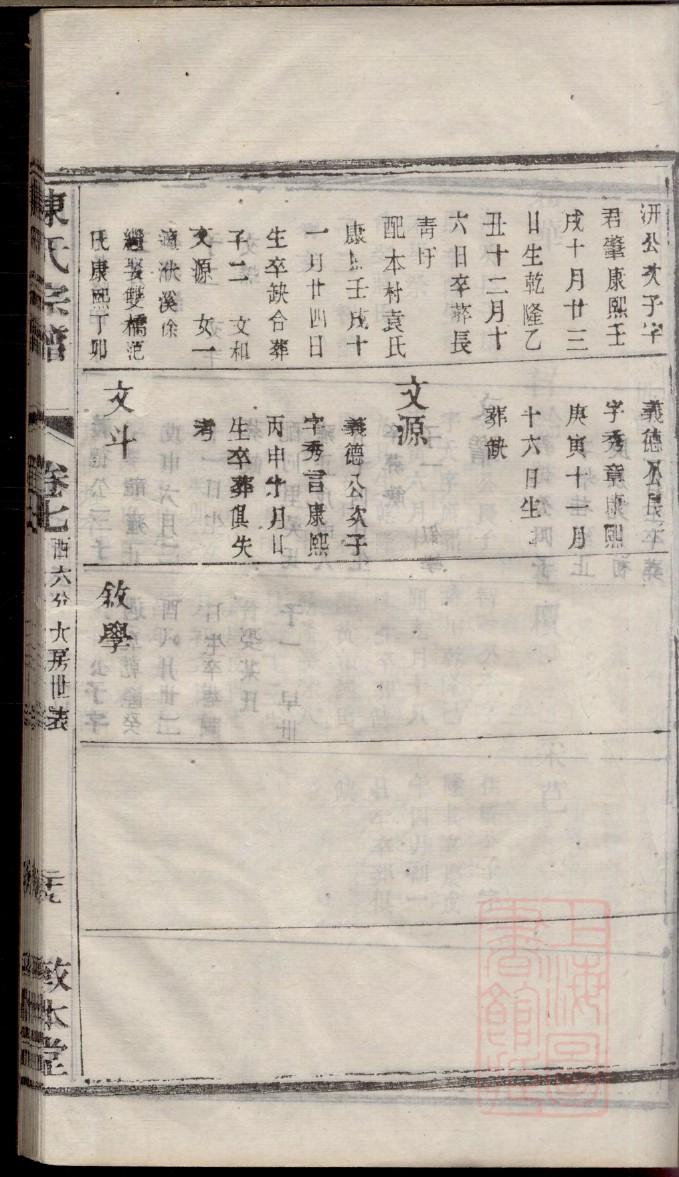 汧公次子字
君肇康熙壬
戌十月廿三
日生乾隆乙
丑十二月十
六日卒葬長
青圩
配本村袁氏
康熙壬戌十
一月廿四日
生卒缺合葬
子二 文和
文源 女一
適洑溪徐
繼娶雙橋范
氏康熙丁卯
義德公長
字秀章康熙
庚寅十一月
十六日生
葬缺
文源
義德公次子
字秀言康熙
丙申十月廿
生卒葬俱失
考
文斗
敘學
陳氏宗譜
卷七
酉六分大房世表
敦本堂
上海圖書館藏